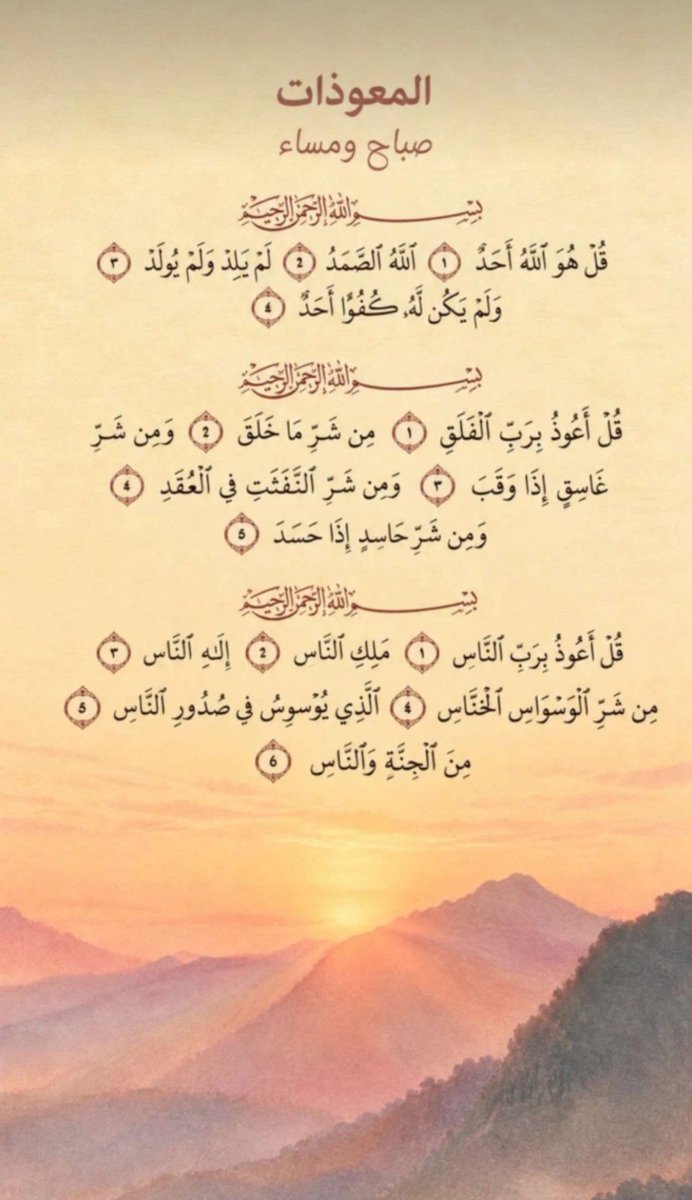 المعوذات
صباح ومساء
بِسْمِ اللَّهِ الرَّحْمَٰنِ الرَّحِيمِ
قُلْ هُوَ ٱللَّهُ أَحَدٌ ١ ٱللَّهُ ٱلصَّمَدُ 2 لَمْ يَلِدْ وَلَمْ يُولَدْ ٣
وَلَمْ يَكُن لَّهُۥ كُفُوًا أَحَدٌ ٤
بِسْمِ اللَّهِ الرَّحْمَٰنِ الرَّحِيمِ
قُلْ أَعُوذُ بِرَبِّ ٱلْفَلَقِ ١ مِن شَرِّ مَا خَلَقَ 2 وَمِن شَرِّ
غَاسِقٍ إِذَا وَقَبَ ٣ وَمِن شَرِّ ٱلنَّفَثَتِ فِي ٱلْعُقَدِ ٤
وَمِن شَرِّ حَاسِدٍ إِذَا حَسَدَ 5
بِسْمِ اللَّهِ الرَّحْمَٰنِ الرَّحِيمِ
قُلْ أَعُوذُ بِرَبِّ ٱلنَّاسِ ١ مَلِكِ ٱلنَّاسِ 2 إِلَٰهِ ٱلنَّاسِ ٣
مِن شَرِّ ٱلْوَسْوَاسِ ٱلْخَنَّاسِ ٤ ٱلَّذِي يُوَسْوِسُ فِي صُدُورِ ٱلنَّاسِ 5
مِنَ ٱلْجِنَّةِ وَٱلنَّاسِ 6